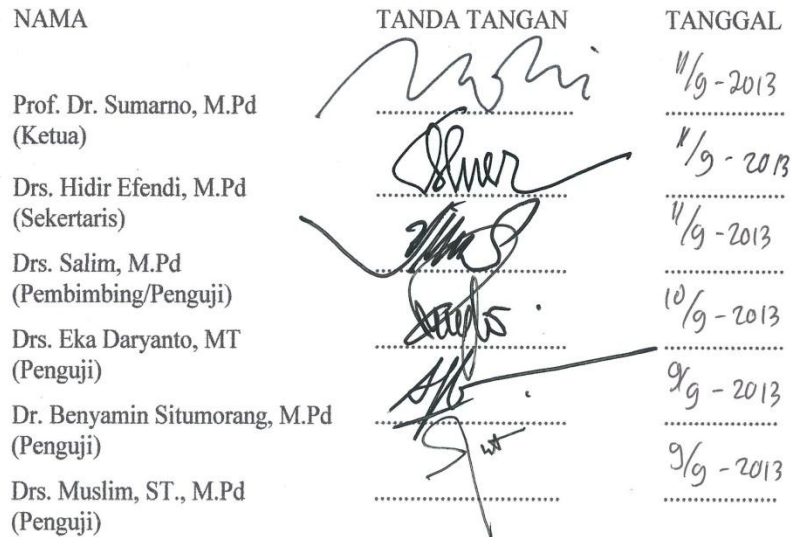 NAMA TANDA TANGAN TANGGAL
11/9-2013
Prof. Dr. Sumarno, M.Pd
(Ketua)
11/9 - 2013
Drs. Hidir Efendi, M.Pd
(Sekertaris)
11/9 - 2013
Drs. Salim, M.Pd
(Pembimbing/Penguji)
10/9 - 2013
Drs. Eka Daryanto, MT
(Penguji)
9/9 - 2013
Dr. Benyamin Situmorang, M.Pd
(Penguji)
9/9 - 2013
Drs. Muslim, ST., M.Pd
(Penguji)